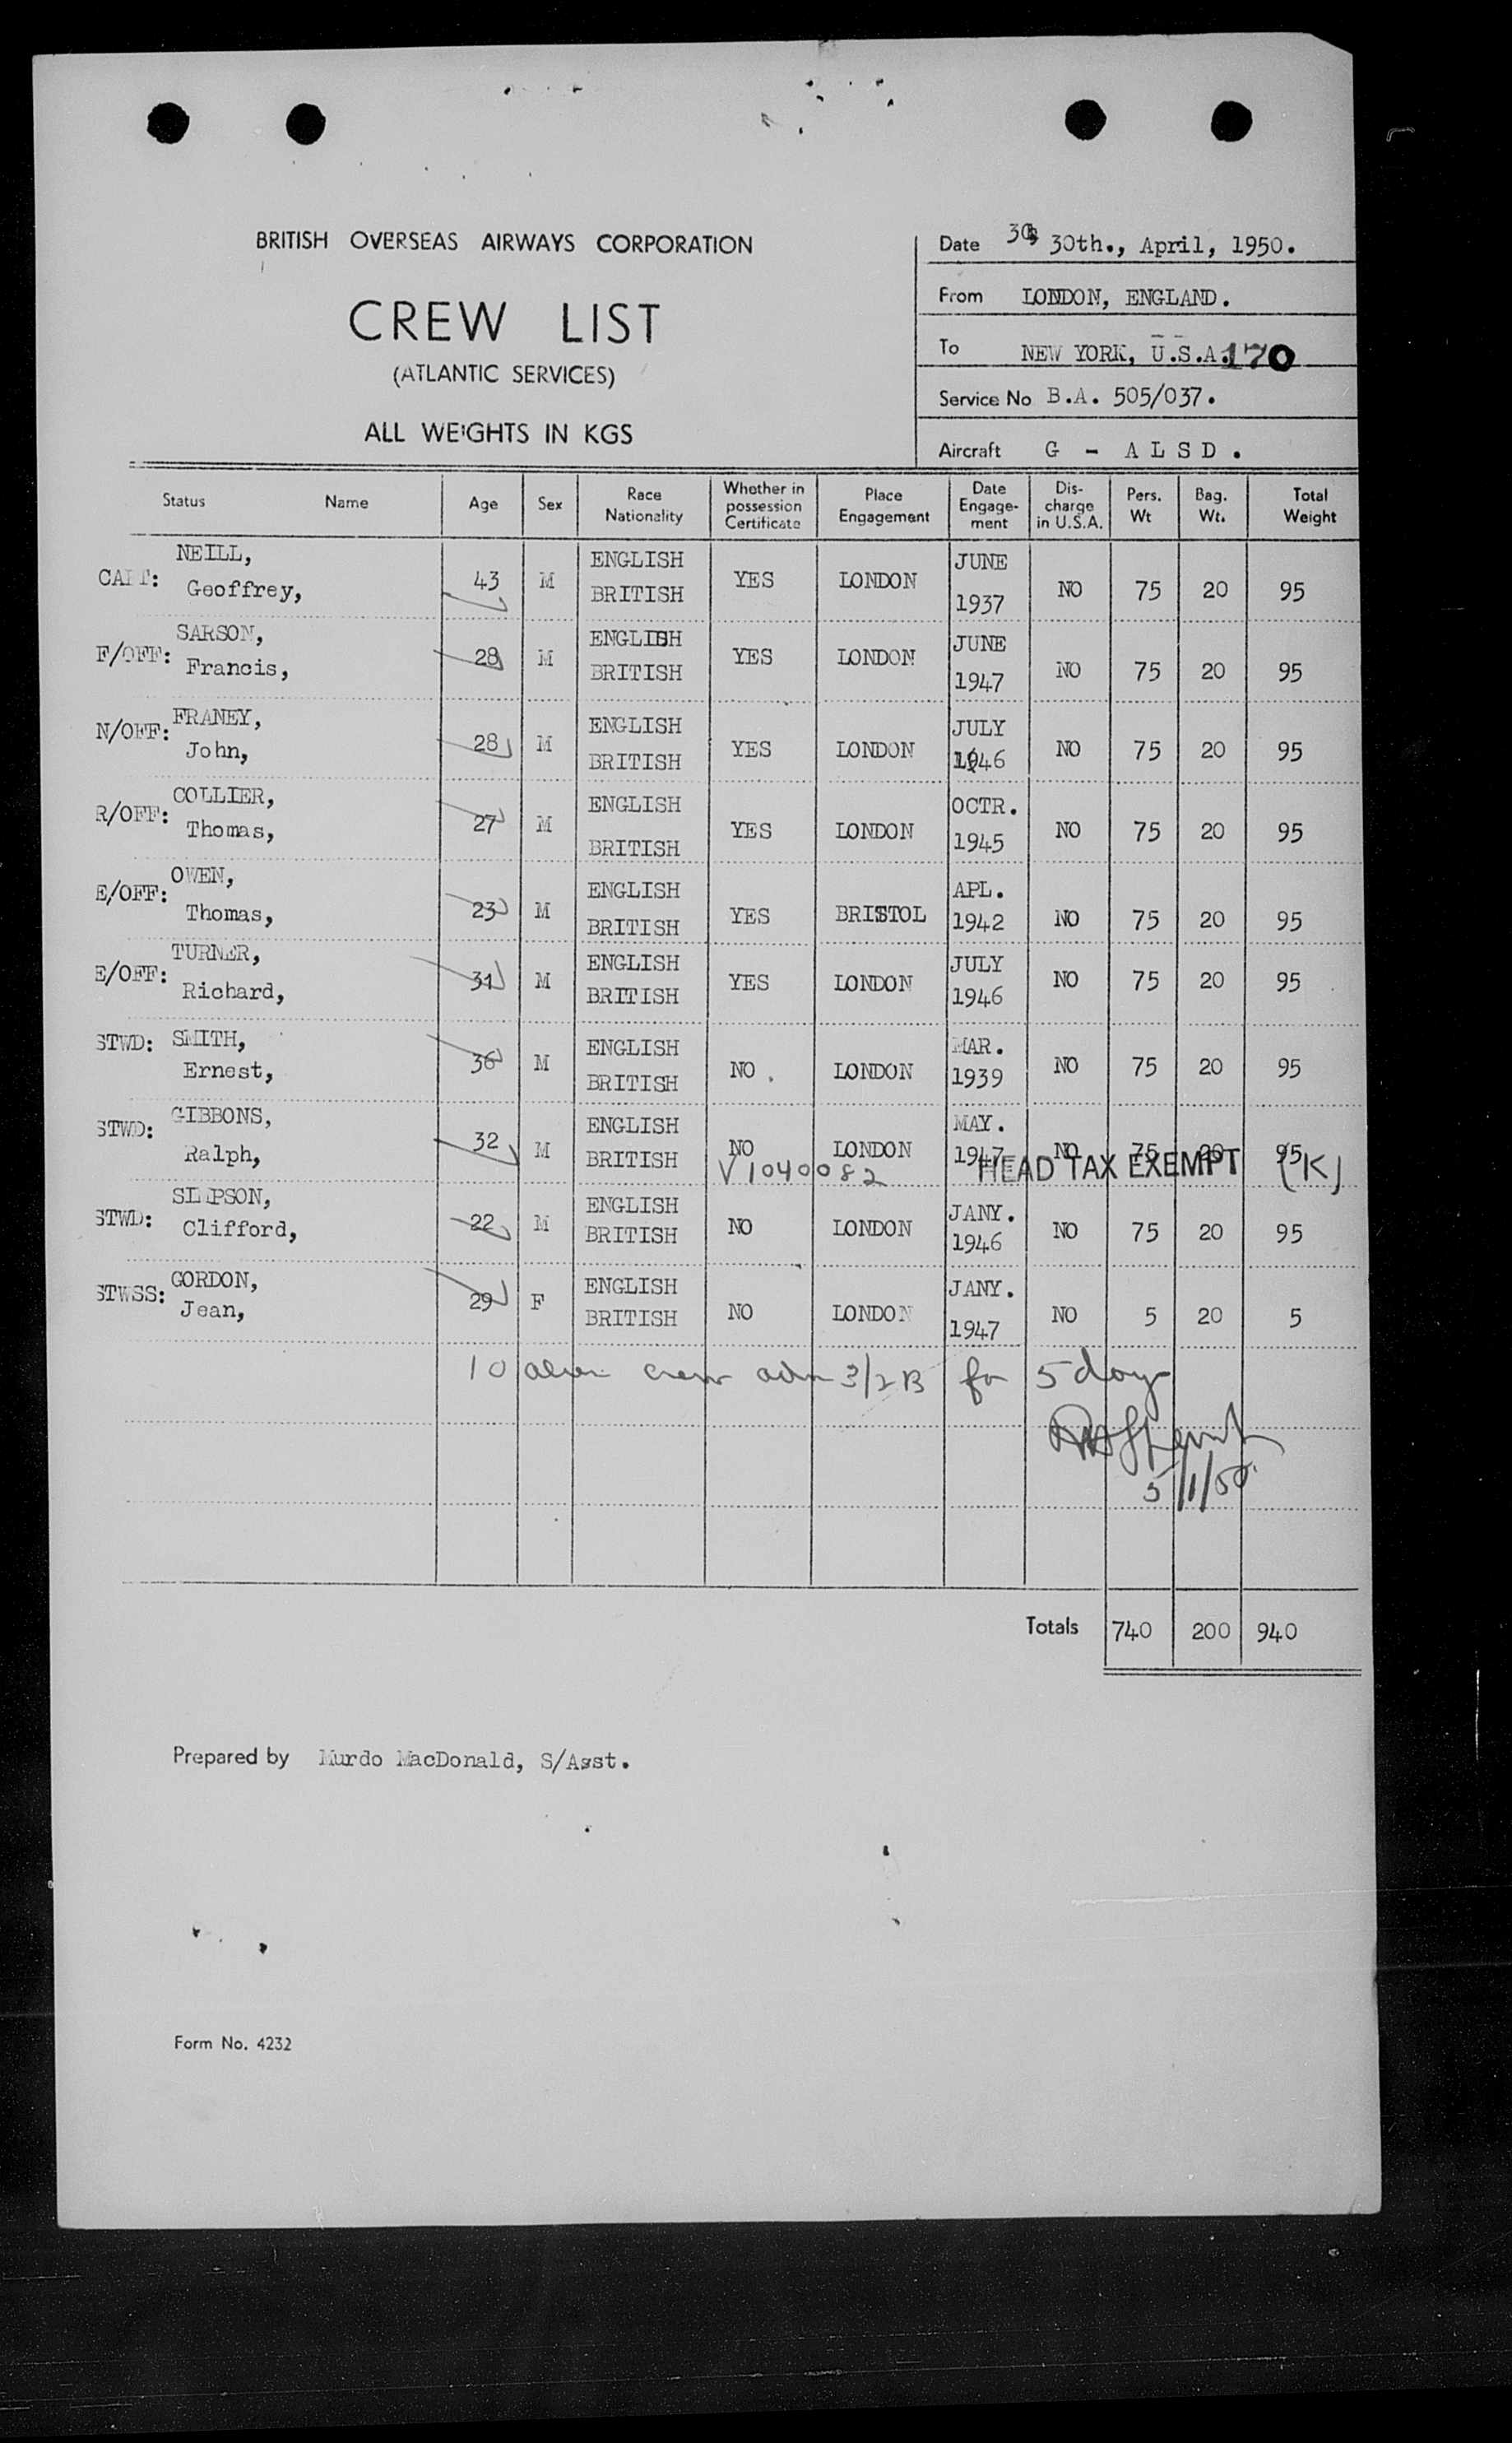 BRITISH OVERSEAS AIRWAYS CORPORATION
CREW LIST
(ATLANTIC SERVICES)
ALL WEIGHTS IN KGS
Date 30th., April, 1950.
From LONDON, ENGLAND.
To NEW YORK, U.S.A. 170
Service No B.A. 505/037.
Aircraft G - A L S D .
Status Name Age Sex Race Nationality Whether in possession Certificate Place Engagement Date Engage-ment Dis-charge in U.S.A. Pers. Wt Bag. Wt. Total Weight
CAPT: NEILL, Geoffrey, 43 M ENGLISH BRITISH YES LONDON JUNE 1937 NO 75 20 95
F/OFF: SARSON, Francis, 28 M ENGLISH BRITISH YES LONDON JUNE 1947 NO 75 20 95
N/OFF: FRANEY, John, 28 M ENGLISH BRITISH YES LONDON JULY 1946 NO 75 20 95
R/OFF: COLLIER, Thomas, 27 M ENGLISH BRITISH YES LONDON OCTR. 1945 NO 75 20 95
E/OFF: OWEN, Thomas, 23 M ENGLISH BRITISH YES BRISTOL APL. 1942 NO 75 20 95
E/OFF: TURNER, Richard, 31 M ENGLISH BRITISH YES LONDON JULY 1946 NO 75 20 95
STWD: SMITH, Ernest, 36 M ENGLISH BRITISH NO. LONDON MAR. 1939 NO 75 20 95
STWD: GIBBONS, Ralph, 32 M ENGLISH BRITISH NO LONDON MAY. 1947 NO 75 20 95
V1040082 HEAD TAX EXEMPT (K)
STWD: SIMPSON, Clifford, 22 M ENGLISH BRITISH NO LONDON JANY. 1946 NO 75 20 95
STWSS: GORDON, Jean, 29 F ENGLISH BRITISH NO LONDON JANY. 1947 NO 5 20 5
10 alien crew adm 3/2 B for 5 days
5/1/50
Totals 740 200 940
Prepared by Murdo MacDonald, S/Asst.
Form No. 4232